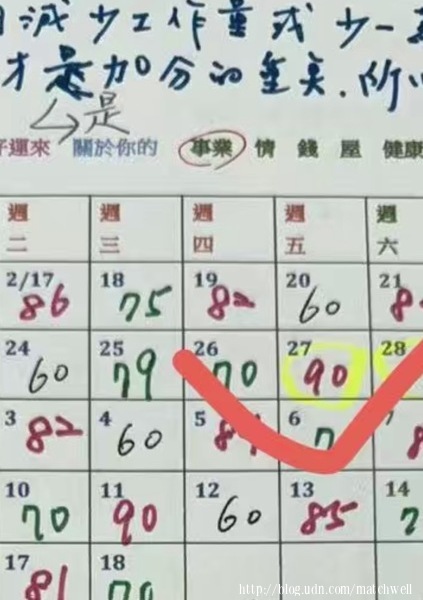 減少工作量或少一
才是加分的重點.所以
是
好運來 關於你的 事業 情 錢 屋 健康
週二 週三 週四 週五 週六
2/17 18 19 20 21
86 75 82 60
24 25 26 27 28
60 79 70 90
3 4 5 6 7
82 60
10 11 12 13 14
70 90 60 85
17 18
81
http://blog.udn.com/matchwell